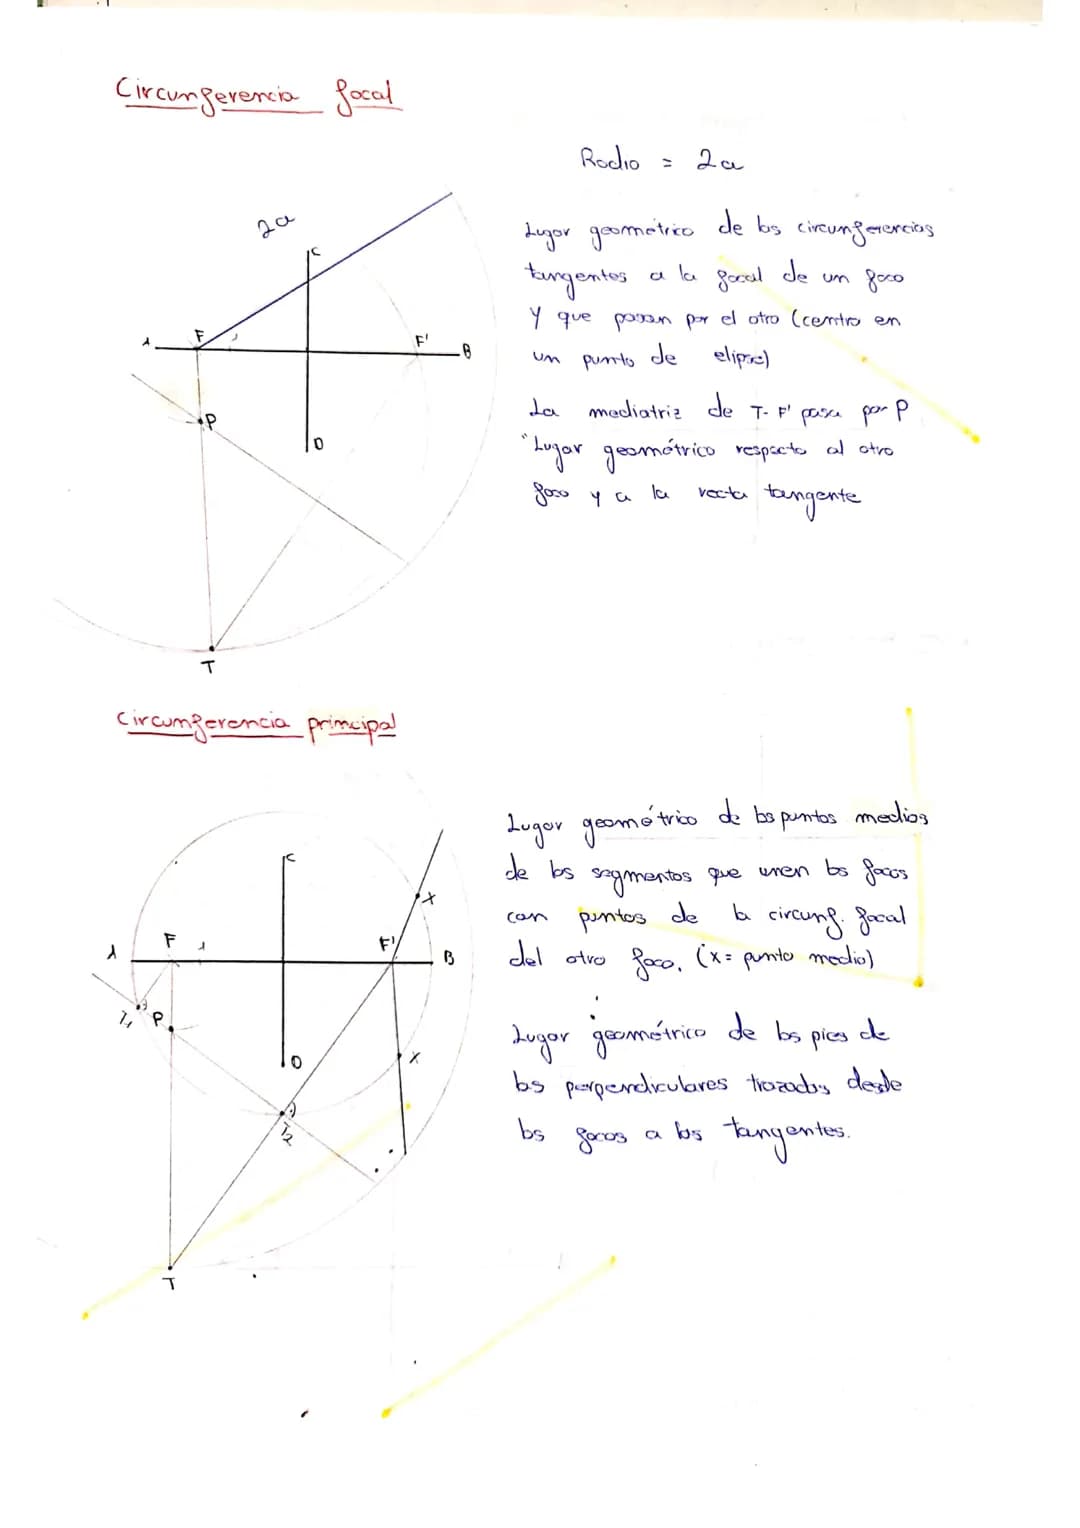 Circunferencia focal
Radio = 2a
2a
Lugar geométrico de los circunferencias
C
tangentes a la focal de un foco
Y que pasan por el otro (centro en
A F F' B
un punto de elipse)
La mediatriz de T-F' pasa por P
P
D
"Lugar geométrico respecto al otro
foco y a la recta tangente
T
Circunferencia principal
Lugar geométrico de los puntos medios
C
de los segmentos que unen los focos
X
con puntos de la circunf. focal
A F F' B
del otro foco. (x= punto medio)
P
Lugar geométrico de los pies de
D X
los perpendiculares trazados desde
los focos a los tangentes.
T